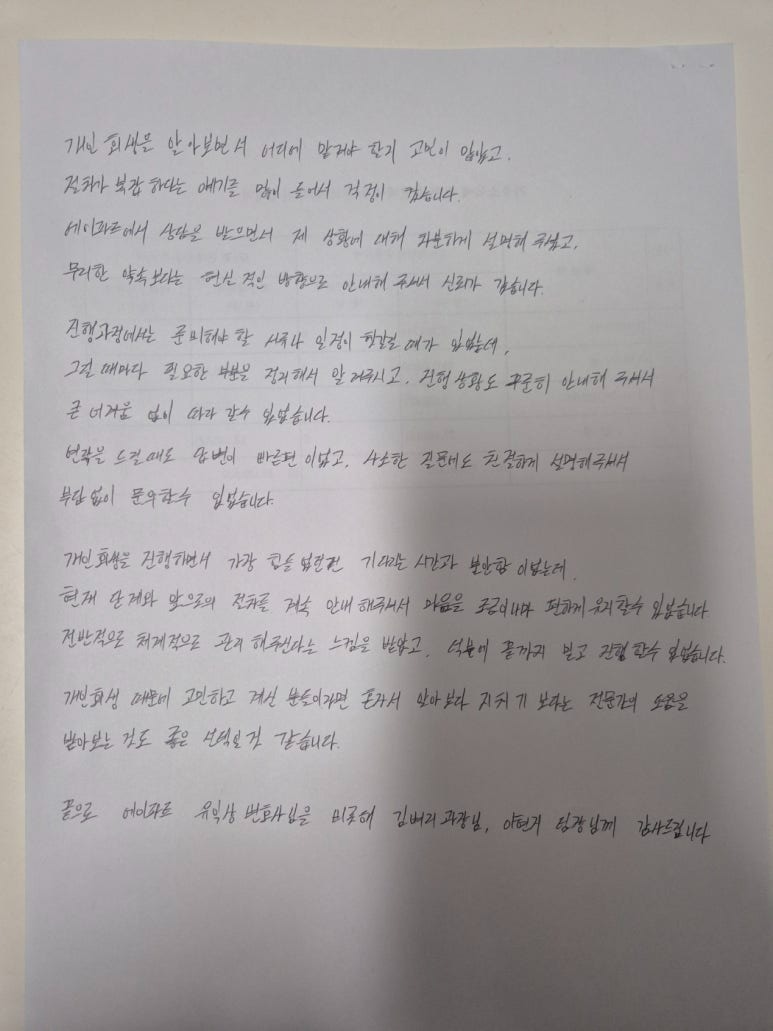 개인 회생을 알아보면서 어디에 맡겨야 할지 고민이 많았고,
절차가 복잡 하다는 얘기를 많이 들어서 걱정이 컸습니다.
에이파트에서 상담을 받으면서 제 상황에 대해 차분하게 설명해 주셨고,
무리한 약속보다는 현실 적인 방향으로 안내해 주셔서 신뢰가 갔습니다.
진행과정에서는 준비해야 할 서류나 일정이 헷갈릴 때가 있었는데,
그럴 때마다 필요한 부분을 정리해서 알려주시고, 진행상황도 꾸준히 안내해 주셔서
큰 어려움 없이 따라 갈수 있었습니다.
연락을 드릴때도 답변이 빠른편 이었고, 사소한 질문에도 친절하게 설명해주셔서
부담없이 문의할수 있었습니다.
개인회생을 진행하면서 가장 힘들었던건 기다리는 시간과 불안함 이었는데,
현재 단계와 앞으로의 절차를 계속 안내해주셔서 마음을 조금이나마 편하게 유지할수 있었습니다
전반적으로 체계적으로 관리 해주신다는 느낌을 받았고, 덕분에 끝까지 믿고 진행할수 있었습니다.
개인회생 때문에 고민하고 계신 분들이라면 혼자서 알아보다 지치기 보다는 전문가의 도움을
받아보는 것도 좋은 선택일것 같습니다.
끝으로 에이파트 유익상 변호사님을 비롯해 과장님, 팀장님께 감사드립니다